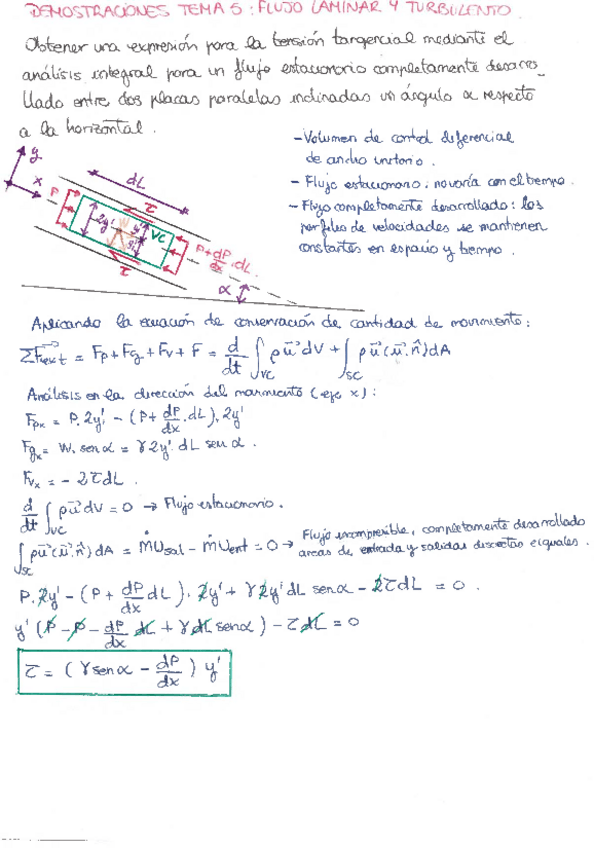 DEMOSTRACIONES TEMA 5: FLUJO LAMINAR Y TURBULENTO.
Obtener una expresión para la tensión tangencial mediante el
análisis integral para un flujo estacionario completamente desarro_
llado entre dos placas paralelas inclinadas un ángulo α respecto
a la horizontal.
- Volumen de control diferencial
de ancho unitario.
- Flujo estacionario: no varía con el tiempo.
- Flujo completamente desarrollado: los
perfiles de velocidades se mantienen
constantes en espacio y tiempo.
y
x
P
dL
τ
2y'
W
y'
VC
τ
P + dP/dx · dL.
α
Aplicando la ecuación de conservación de cantidad de movimiento:
ΣFext = Fp + Fg + Fv + F = d/dt ∫VC ρu⃗ dV + ∫SC ρu⃗(u⃗·n̂)dA
Análisis en la dirección del movimiento (eje x):
Fpx = P·2y' - (P + dP/dx · dL)·2y'
Fgx = W·senα = γ2y' dL senα.
Fvx = - 2τdL.
d/dt ∫VC ρu⃗ dV = 0 → Flujo estacionario.
∫SC ρu⃗(u⃗·n̂)dA = ṁUsal - ṁUent = 0 → Flujo incompresible, completamente desarrollado
areas de entrada y salidas discretas e iguales.
P·2y' - (P + dP/dx dL)·2y' + γ2y'dL senα - 2τdL = 0.
y' (P - P - dP/dx dL + γdL senα) - τdL = 0
τ = (γ senα - dP/dx) y'